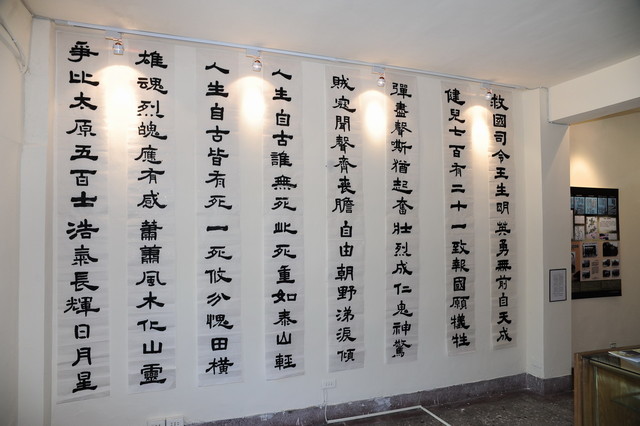 救國司令王生明英勇無前自天成
健兒七百有二十一致報國願犧牲
彈盡聲嘶猶起奮壯烈成仁鬼神驚
賊寇聞聲齊喪膽自由朝野涕淚傾
人生自古誰無死此死重如泰山輕
人生自古皆有死一死攸分愧田橫
雄魂烈魄應有感蕭蕭風木仁山靈
爭比太原五百士浩氣長輝日月星